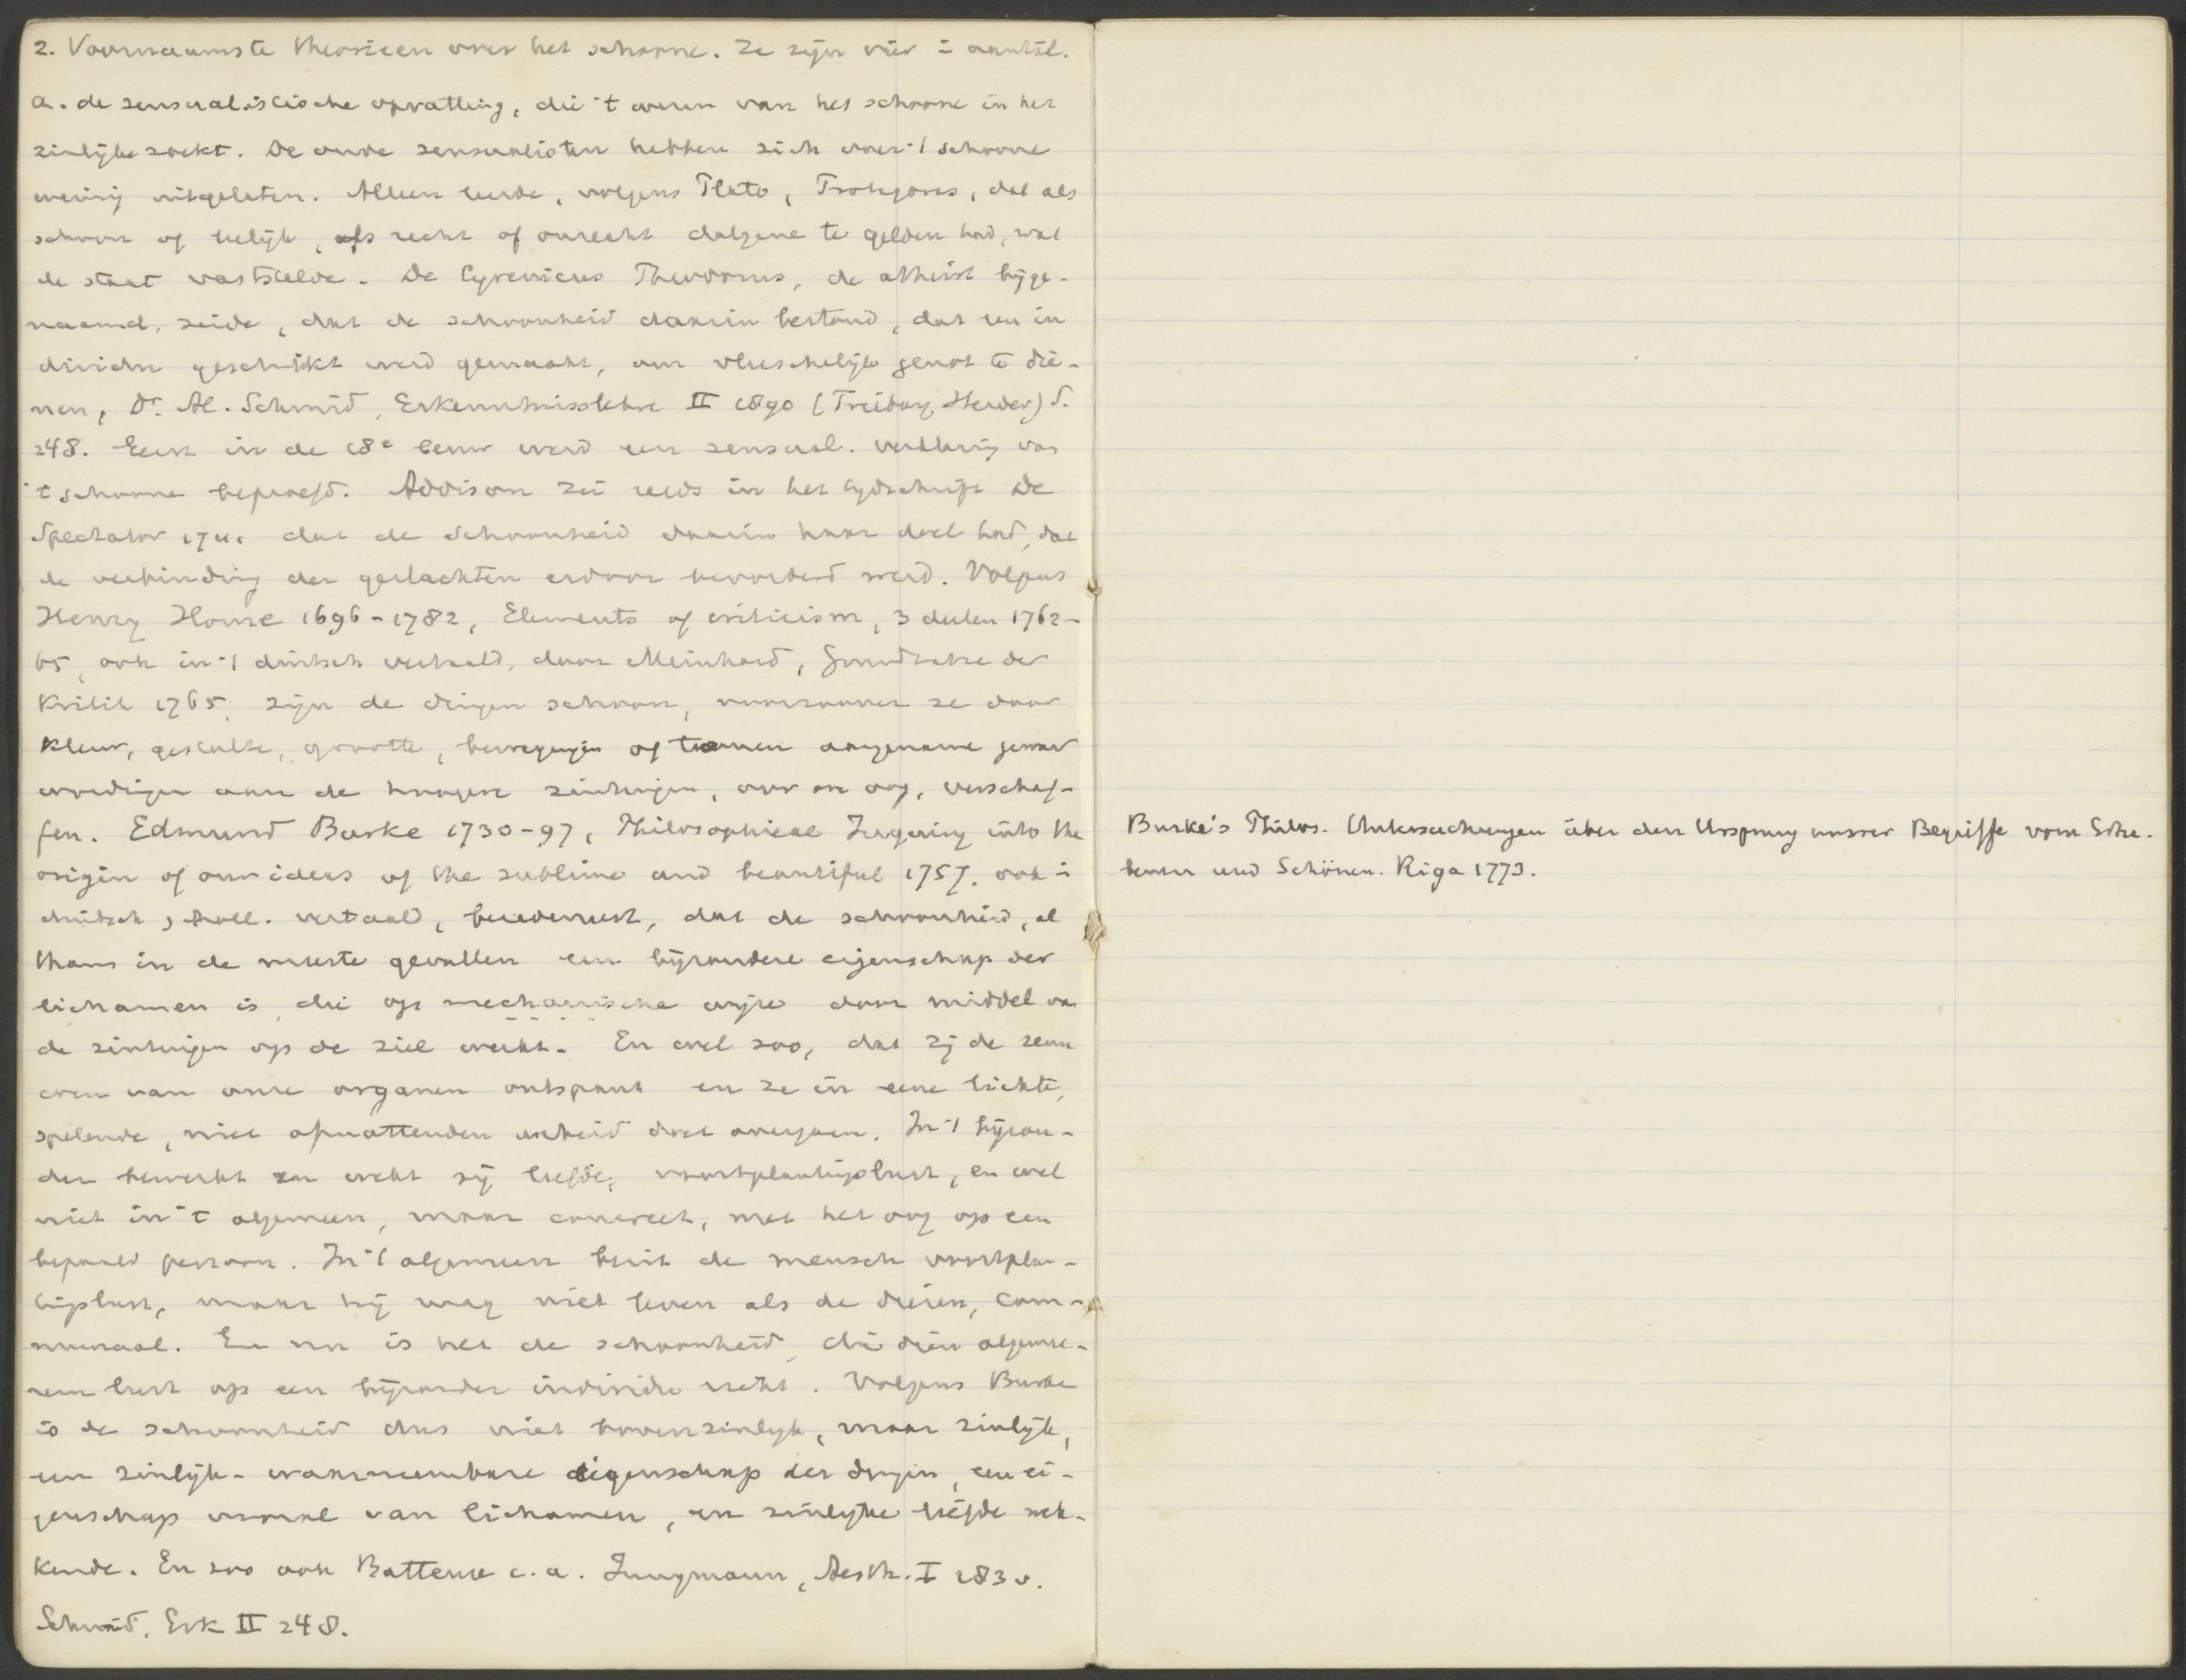 2. Voornaamste theorieen over het schoone. Ze zijn vier in aantal.
a. de sensualistische opvatting, die 't wezen van het schoone in het
zinlijke zoekt. De oude sensualisten hebben zich over 't schoone
weinig uitgelaten. Alleen leerde, volgens Plato, Protagoras, dat als
schoon of lelijk, als recht of onrecht datgene te gelden had, wat
de staat vaststelde. De Cyrenicus Theodorus, de atheist bijge-
naamd, zeide, dat de schoonheid daarin bestond, dat een in
dividu geschikt werd gemaakt, om vleeschelijk genot te die-
nen, Dr. Al. Schmid, Erkenntnisslehre II 1890 (Freiburg, Herder) S.
248. Eerst in de 18e eeuw werd een sensual. verklaring van
't schoone beproefd. Addison zei reeds in het tijdschrift De
Spectator 1711 dat de schoonheid daarin haar doel had, dat
de verbinding der geslachten erdoor bevorderd werd. Volgens
Henry Home 1696-1782, Elements of criticism, 3 deelen 1762-
65, ook in 't duitsch vertaald, door Meinhard, Grundsätze der
Kritik 1765, zijn de dingen schoon, voorzoover ze door
kleur, gestalte, grootte, bewegingen of tonen aangename gewaar
wordingen aan de hoogere zintuigen, oor en oog, verschaf-
fen. Edmund Burke 1730-97, Philosophical Inquiry into the
origin of our ideas of the sublime and beautiful 1757, ook in
duitsch, holl. vertaald, beredeneert, dat de schoonheid, al
thans in de meeste gevallen een bijzondere eigenschap der
lichamen is, die op mechanische wijze door middel van
de zintuigen op de ziel werkt. En wel zoo, dat zij de zenu
wen van onze organen ontspant en ze in eene lichte,
spelende, niet afmattenden arbeid doet overgaan. In 't bijzon-
der bewerkt en wekt zij liefde, voortplantingslust, en wel
niet in 't algemeen, maar concreet, met het oog op een
bepaald persoon. In 't algemeen bezit de mensch voortplan-
tingslust, maar hij mag niet leven als de dieren, com-
munaal. En nu is het de schoonheid, die dien algemee-
nen lust op een bijzonder individu richt. Volgens Burke
is de schoonheid dus niet bovenzinlijk, maar zinlijk,
een zinlijk-waarneembare eigenschap der dingen, een ei-
genschap vooral van lichamen, en zinlijke liefde wek-
kende. En zoo ook Batteux e.a. Jungmann, Aesth. I 183 v.
Schmid, Erk II 248.
Burke's Philos. Untersuchungen über den Ursprung unsrer Begriffe vom Erha-
benen und Schönen. Riga 1773.